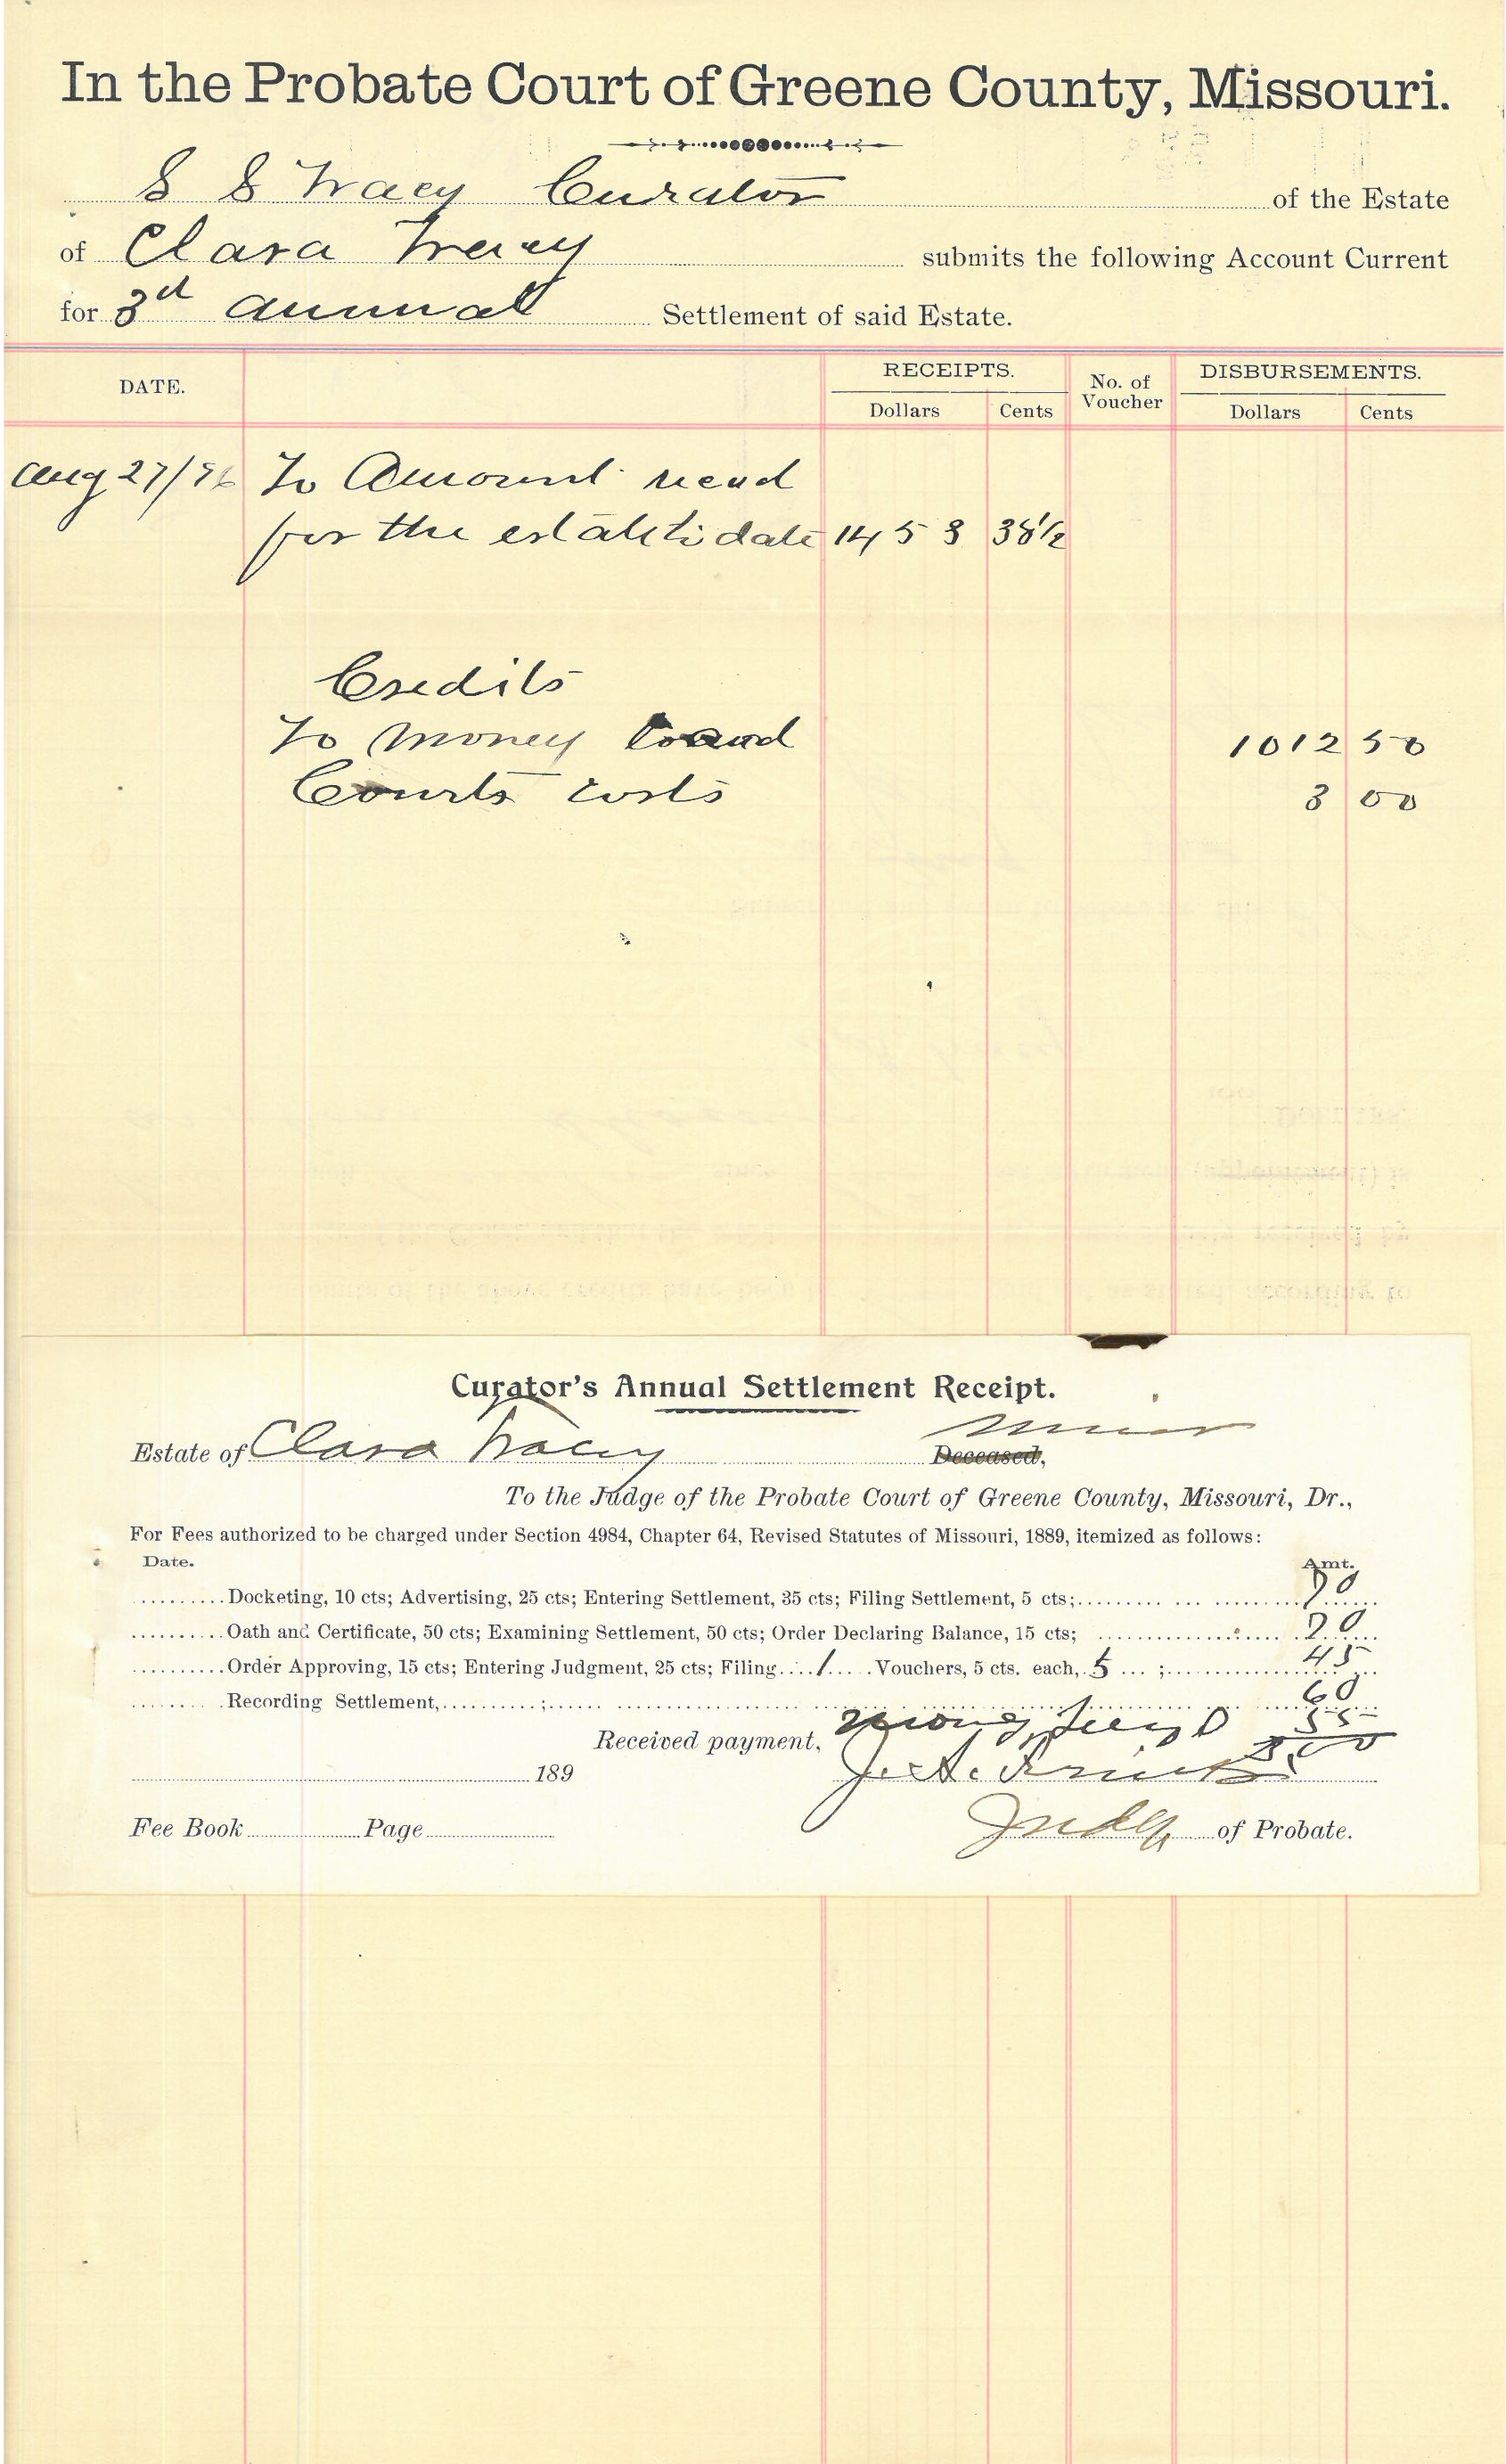 In the Probate Court of Greene County, Missouri.
S S Tracy Curator of the Estate
of Clara Tracy submits the following Account Current
for 3d annual Settlement of said Estate.
DATE. RECEIPTS. No. of Voucher DISBURSEMENTS.
Dollars Cents Dollars Cents
Aug 27/96 To Amount recud
for the estate to date 1453 38½
Credits
To Money Loand 1012 50
Courts costs 3 00
Curator's Annual Settlement Receipt.
Minor
Estate of Clara Tracy Deceased,
To the Judge of the Probate Court of Greene County, Missouri, Dr.,
For Fees authorized to be charged under Section 4984, Chapter 64, Revised Statutes of Missouri, 1889, itemized as follows:
Date. Amt.
Docketing, 10 cts; Advertising, 25 cts; Entering Settlement, 35 cts; Filing Settlement, 5 cts; 70
Oath and Certificate, 50 cts; Examining Settlement, 50 cts; Order Declaring Balance, 15 cts; 70
Order Approving, 15 cts; Entering Judgment, 25 cts; Filing 1 Vouchers, 5 cts. each, 5 ; 45
Recording Settlement, ; 60
55
Received payment, 3 00
189
Fee Book Page Judge of Probate.